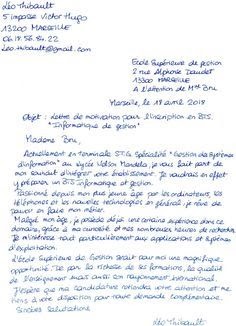 Léo Thibault
5 impasse Victor Hugo
13200 MARSEILLE
06.18.56.84.22
Leo.thibault@gmail.com
Ecole Supérieure de gestion
2 rue Alphonse Daudet
13200 MARSEILLE
A l'attention de Mme Bru,
Marseille, le 18 avril 2018
Objet : lettre de motivation pour l'inscription en BTS
"Informatique de gestion"
Madame Bru,
Actuellement en terminale STG, Spécialité "Gestion de Systèmes
d'information" au lycée Nelson Mandela, je vous fait part de
mon souhait d'intégrer votre établissement. Je voudrais en effet
y préparer un BTS Informatique et gestion.
Passionné depuis mon plus jeune âge par les ordinateurs, les
téléphones et les nouvelles technologies en général, je rêve de
pouvoir en faire mon métier.
Malgré mon âge, je possède déjà une certaine expérience dans ce
domaine, grâce à ma curiosité et mes nombreuses heures de recherche.
Je m'intéresse tout particulièrement aux applications et systèmes
d'exploitation.
L'École Supérieure de Gestion serait pour moi une magnifique
opportunité de par la richesse de ses formations, la qualité
de l'enseignement mais aussi son rayonnement international.
J'espère que ma candidature retiendra votre attention et me
tiens à votre disposition pour toute demande complémentaire.
Sincères salutations,
Léo Thibault